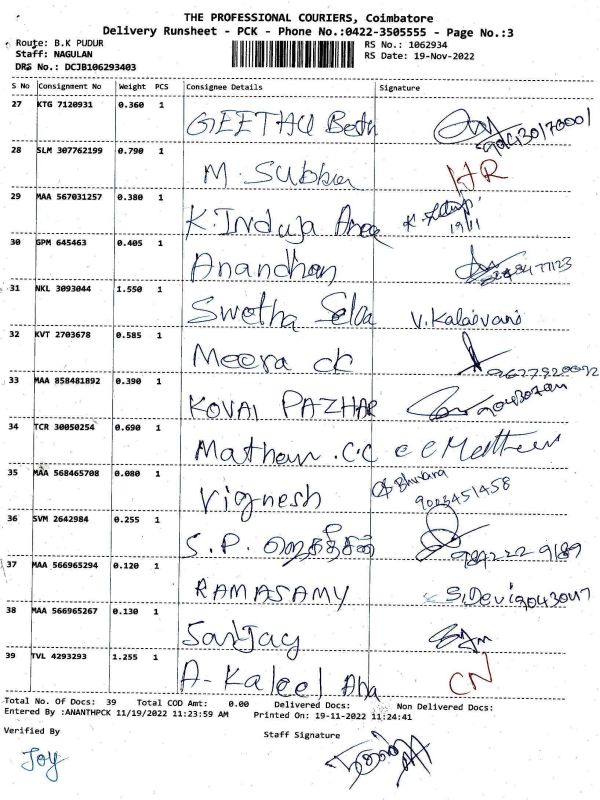 THE PROFESSIONAL COURIERS, Coimbatore
Delivery Runsheet - PCK - Phone No.:0422-3505555 - Page No.:3
Route: B.K PUDUR RS No.: 1062934
Staff: NAGULAN RS Date: 19-Nov-2022
DRS No.: DCJB106293403
S No Consignment No Weight PCS Consignee Details Signature
27 KTG 7120931 0.360 1 GEETHU
28 SLM 307762199 0.790 1 M. Subbia HR
29 MAA 567031257 0.380 1 K. Induja 19/11
30 GPM 645463 0.405 1 Anandhan
31 NKL 3093044 1.550 1 Swetha Selva V. Kalaivani
32 KVT 2703678 0.585 1 Meera ck
33 MAA 858481892 0.390 1 KOVAI PAZHAR
34 TCR 30050254 0.690 1 Mathew .C.C
35 MAA 568465708 0.080 1 Vignesh 9025451458
36 SVM 2642984 0.255 1 S.P.
37 MAA 566965294 0.120 1 RAMASAMY S. Devi
38 MAA 566965267 0.130 1 Sanjay
39 TVL 4293293 1.255 1 A- Kaleel CN
Total No. Of Docs: 39 Total COD Amt: 0.00 Delivered Docs: Non Delivered Docs:
Entered By :ANANTHPCK 11/19/2022 11:23:59 AM Printed On: 19-11-2022 11:24:41
Verified By Staff Signature
Joy